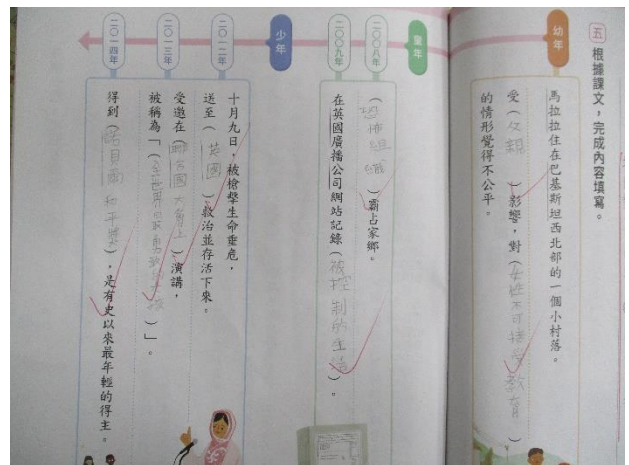 五 根據課文，完成內容填寫。
幼年
馬拉拉住在巴基斯坦西北部的一個小村落。
受（父親）影響，對（女性不可接受教育）
的情形覺得不公平。
童年
二〇〇八年
（恐怖組織）霸占家鄉。
二〇〇九年
在英國廣播公司網站記錄（被控制的生活）。
少年
二〇一二年
十月九日，被槍擊生命垂危，
送至（英國）救治並存活下來。
二〇一三年
受邀在（聯合國大會上）演講，
被稱為「（全世界最勇敢的女孩）」。
二〇一四年
得到（諾貝爾和平獎），是有史以來最年輕的得主。